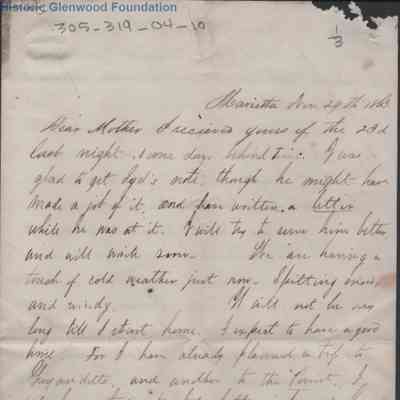 Historic Glenwood Foundation
305-319-04-10
1/3
Marietta Nov 29th 1863
Dear Mother I recieved yours of the 23d
last night. some days behind time. I was
glad to get note, though he might have
made a job of it and written a letter
while he was at it. I will try to serve him better
and will write soon. We are having a
touch of cold weather just now. Spitting snow
and windy. It will not be very
long till I start home. I expect to have a good
time. For I have already planned a trip to
Guyandotte, and another to the